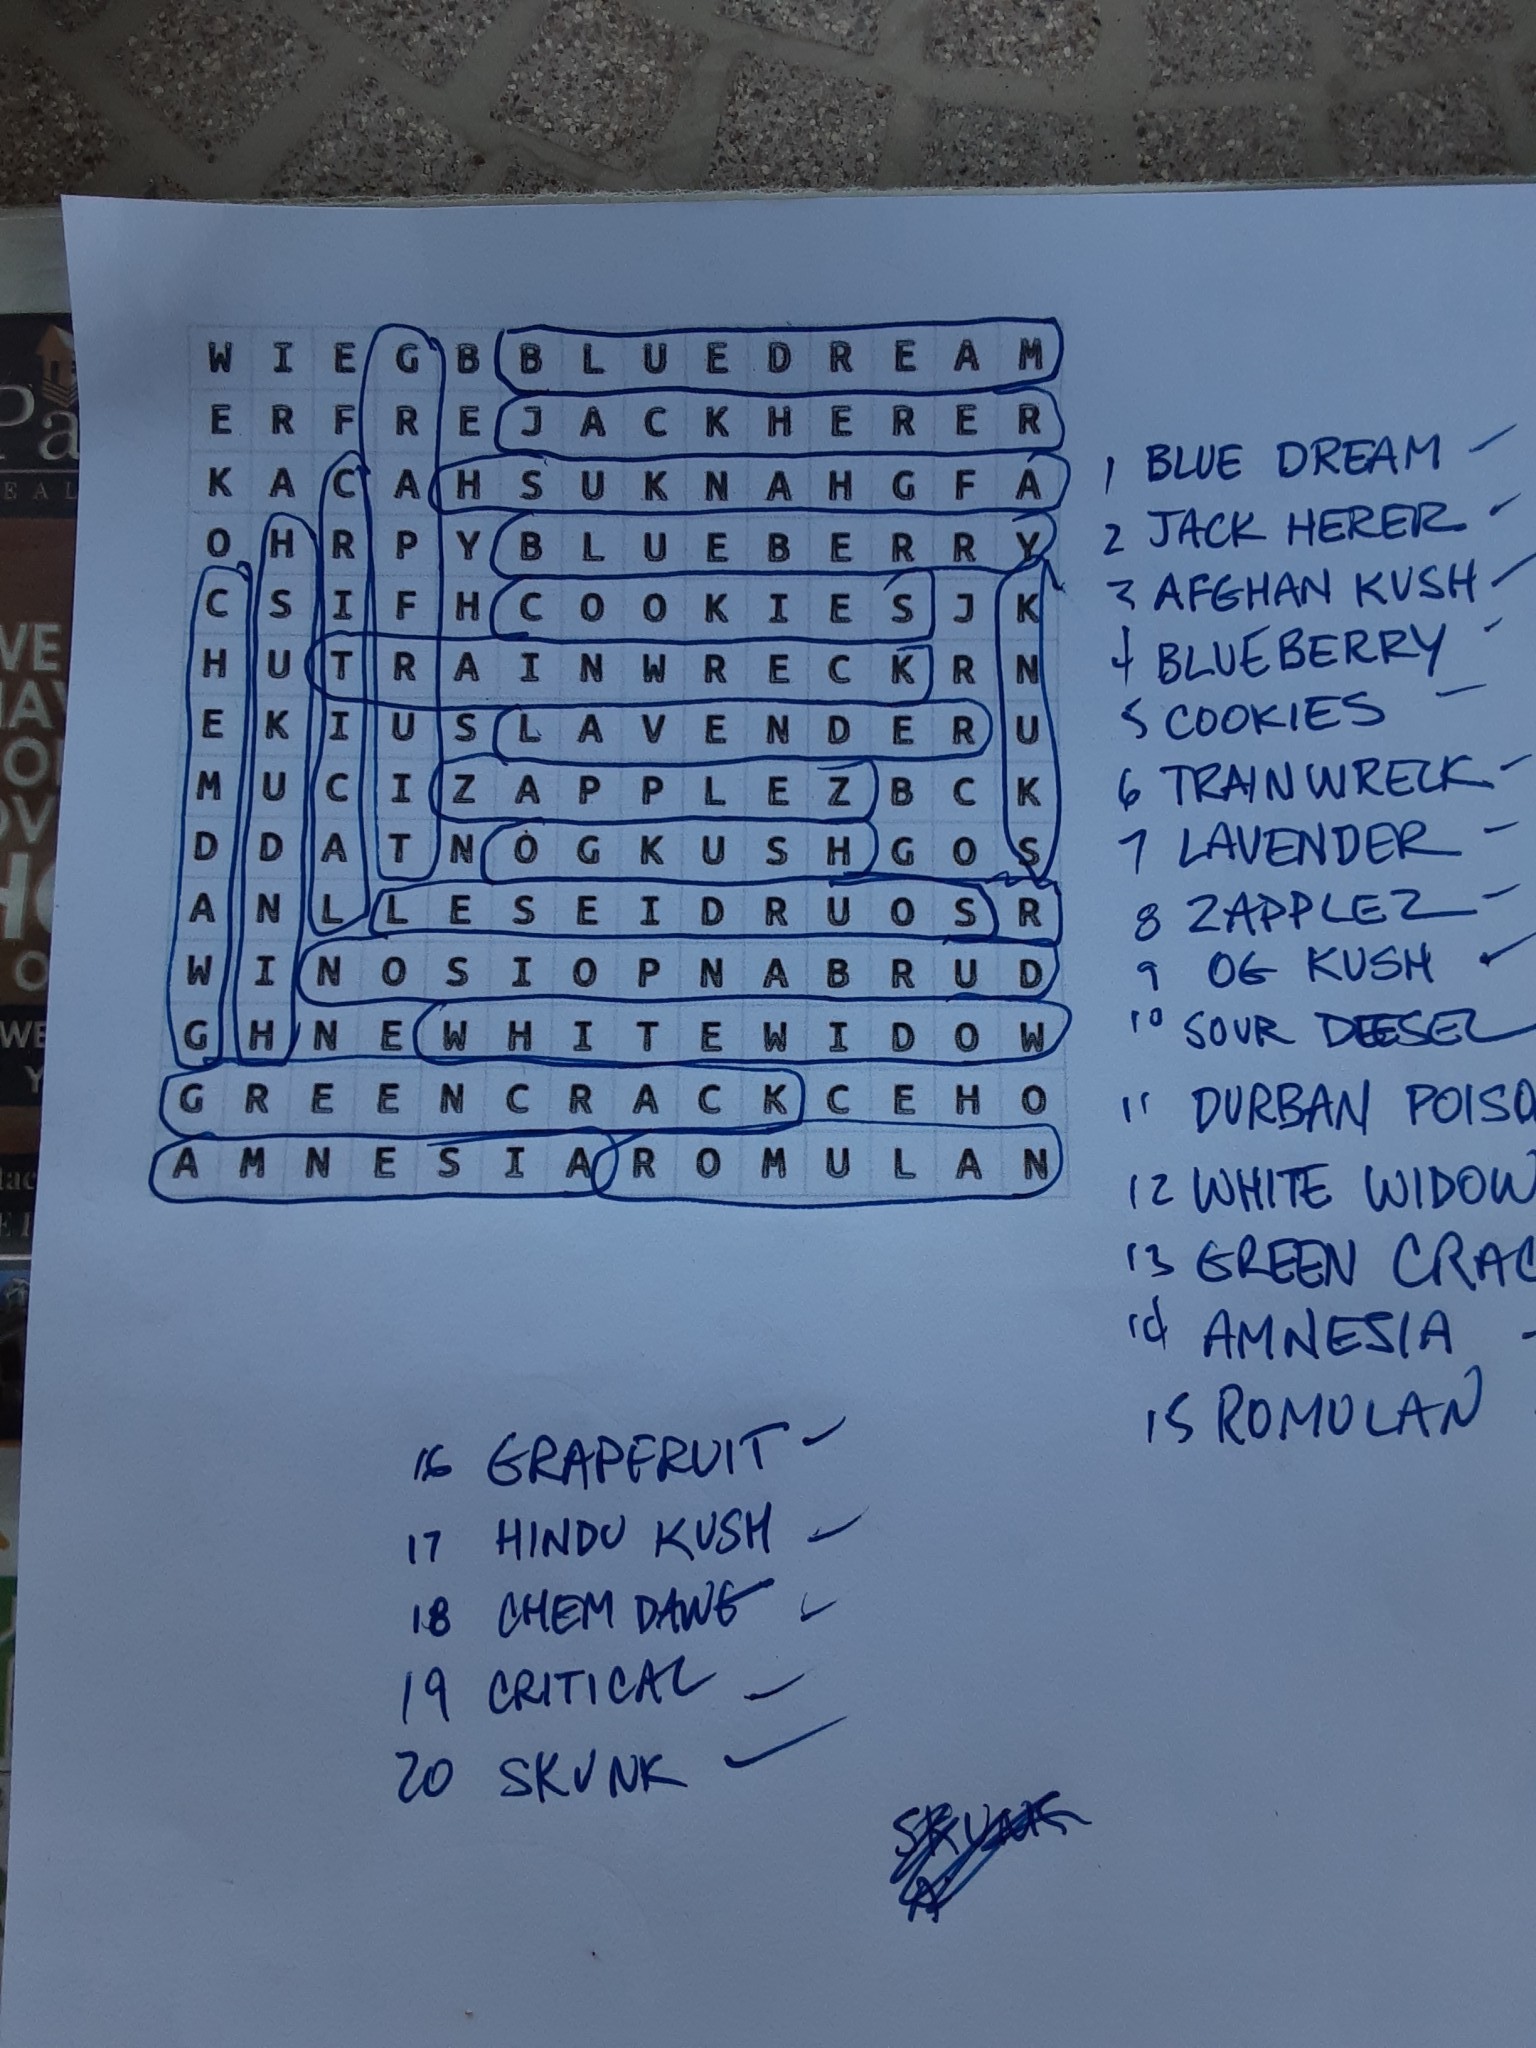 W I E G B B L U E D R E A M
E R F R E J A C K H E R E R
K A C A H S U K N A H G F A
O H R P Y B L U E B E R R Y
C S I F H C O O K I E S J K
H U T R A I N W R E C K R N
E K I U S L A V E N D E R U
M U C I Z A P P L E Z B C K
D D A T N O G K U S H G O S
A N L L E S E I D R U O S R
W I N O S I O P N A B R U D
G H N E W H I T E W I D O W
G R E E N C R A C K C E H O
A M N E S I A R O M U L A N
1 BLUE DREAM
2 JACK HERER
3 AFGHAN KUSH
4 BLUEBERRY
5 COOKIES
6 TRAINWRECK
7 LAVENDER
8 ZAPPLEZ
9 OG KUSH
10 SOUR DEESEL
11 DURBAN POISO
12 WHITE WIDOW
13 GREEN CRAC
14 AMNESIA
15 ROMULAN
16 GRAPEFRUIT
17 HINDU KUSH
18 CHEM DAWG
19 CRITICAL
20 SKUNK